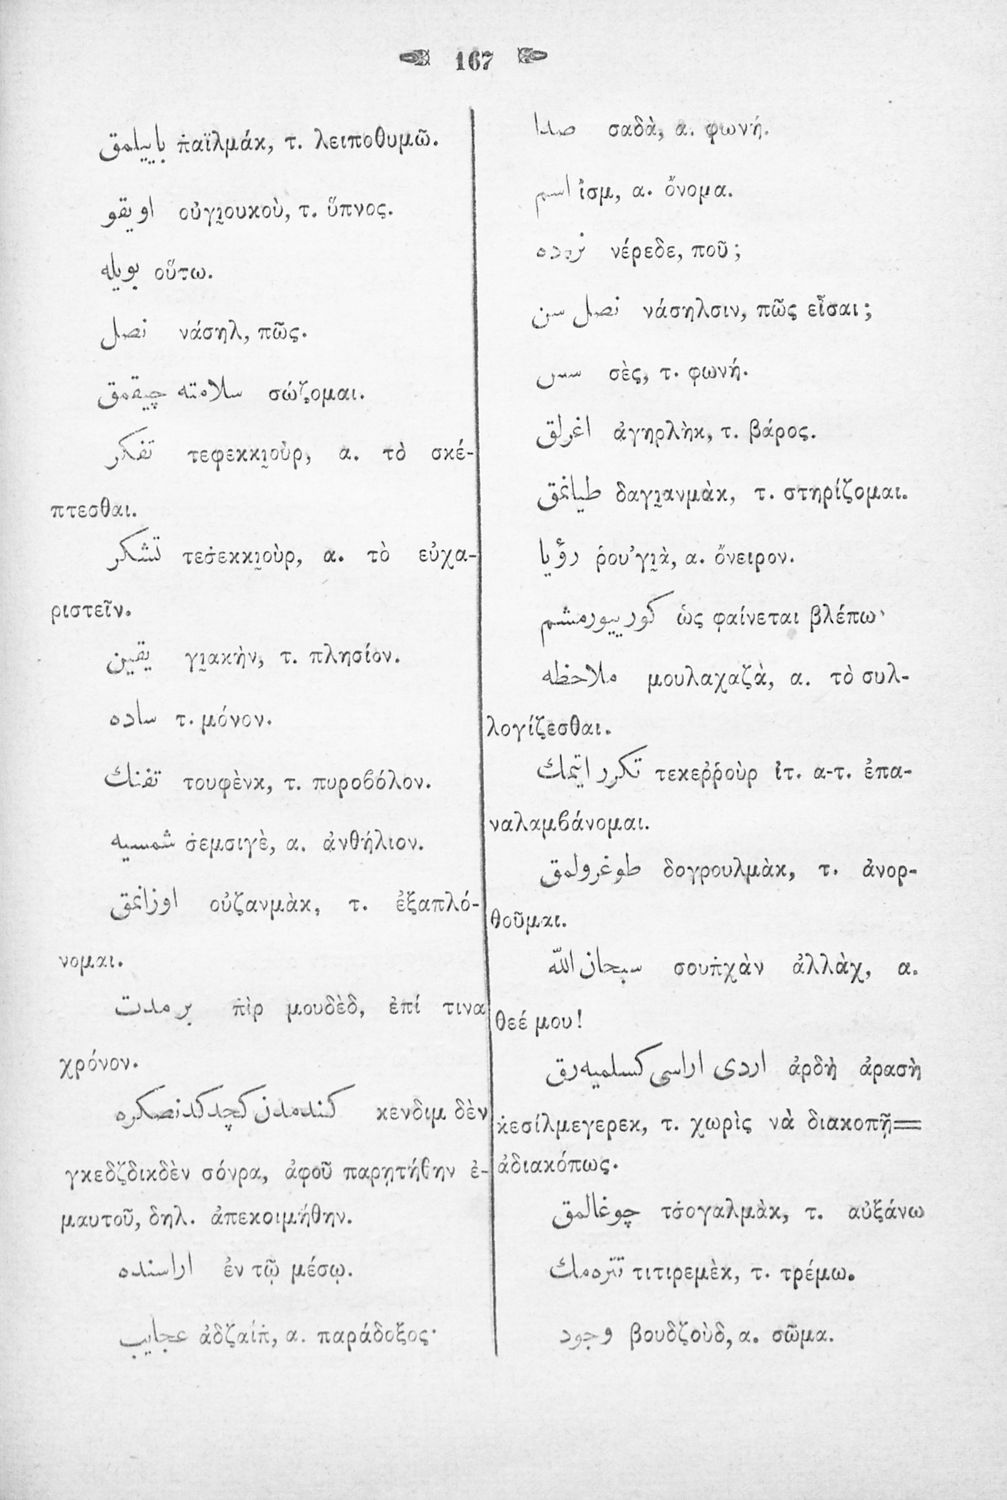 167
بايلمق π̇αϊλμάκ, τ. λειποθυμῶ.
اويقو οὐγι̯ουκοὺ, τ. ὕπνος.
بويله οὕτω.
نصل νάσηλ, πῶς.
سلامته چيقمق σώζομαι.
تفكر τεφεκκι̯οὺρ, α. τὸ σκέ-
πτεσθαι.
تشكر τεσ̇εκκι̯οὺρ, α. τὸ εὐχα-
ριστεῖν.
يقين γι̯ακὴν, τ. πλησίον.
ساده τ. μόνον.
تفنك τουφὲνκ, τ. πυροβόλον.
شمسيه σ̇εμσιγὲ, α. ἀνθήλιον.
اوزانمق οὐζανμὰκ, τ. ἐξαπλό-
νομαι.
بر مدت π̇ὶρ μουδὲδ, ἐπί τινα
χρόνον.
كندمدن كچدكدنصكره κενδιμ δὲν
γκεδζδικδὲν σόνρα, ἀφοῦ παρῃτήθην ἐ-
μαυτοῦ, δηλ. ἀπεκοιμήθην.
اراسنده ἐν τῷ μέσῳ.
عجايب ἀδζαίπ̇, α. παράδοξος·
صدا σαδὰ, α. φωνή.
اسم ἴσμ, α. ὄνομα.
نرده νέρεδε, ποῦ;
نصل سن νάσηλσιν, πῶς εἶσαι;
سس σὲς, τ. φωνή.
اغرلق ἀγηρλὴκ, τ. βάρος.
طيانمق δαγι̯ανμὰκ, τ. στηρίζομαι.
رؤيا ῥου’γι̯ὰ, α. ὄνειρον.
كورييورمشم ὡς φαίνεται βλέπω·
ملاحظه μουλαχαζὰ, α. τὸ συλ-
λογίζεσθαι.
تكرر ايتمك τεκεῤῥοὺρ ἰτ. α-τ. ἐπα-
ναλαμβάνομαι.
طوغرولمق δογρουλμὰκ, τ. ἀνορ-
θοῦμαι.
سبحان الله σουπ̇χὰν ἀλλὰχ, α.
θεέ μου!
اردى اراسى كسلميه رق ἀρδὴ ἀρασὴ
κ̇εσίλμεγερεκ, τ. χωρὶς νὰ διακοπῇ=
ἀδιακόπως.
چوغالمق τσ̇ογαλμὰκ, τ. αὐξάνω
تتره مك τιτιρεμὲκ, τ. τρέμω.
وجود βουδζοὺδ, α. σῶμα.